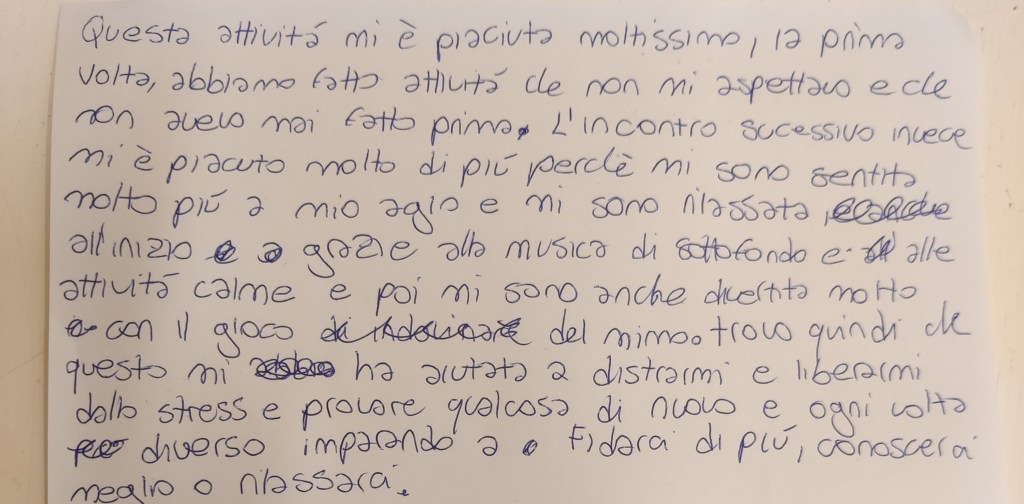 Questa attivitá mi è piaciuta moltissimo, la prima
volta, abbiamo fatto attivitá che non mi aspettavo e che
non avevo mai fatto prima. L'incontro sucessivo invece
mi è piacuto molto di piú perchè mi sono sentita
molto piú a mio agio e mi sono rilassata,
all'inizio grazie alla musica di sottofondo e alle
attivitá calme e poi mi sono anche divertita molto
con il gioco del mimo. trovo quindi che
questo mi ha aiutata a distrarmi e liberarmi
dallo stress e provare qualcosa di nuovo e ogni volta
diverso imparando a fidarci di piú, conoscerci
meglio o rilassarci.